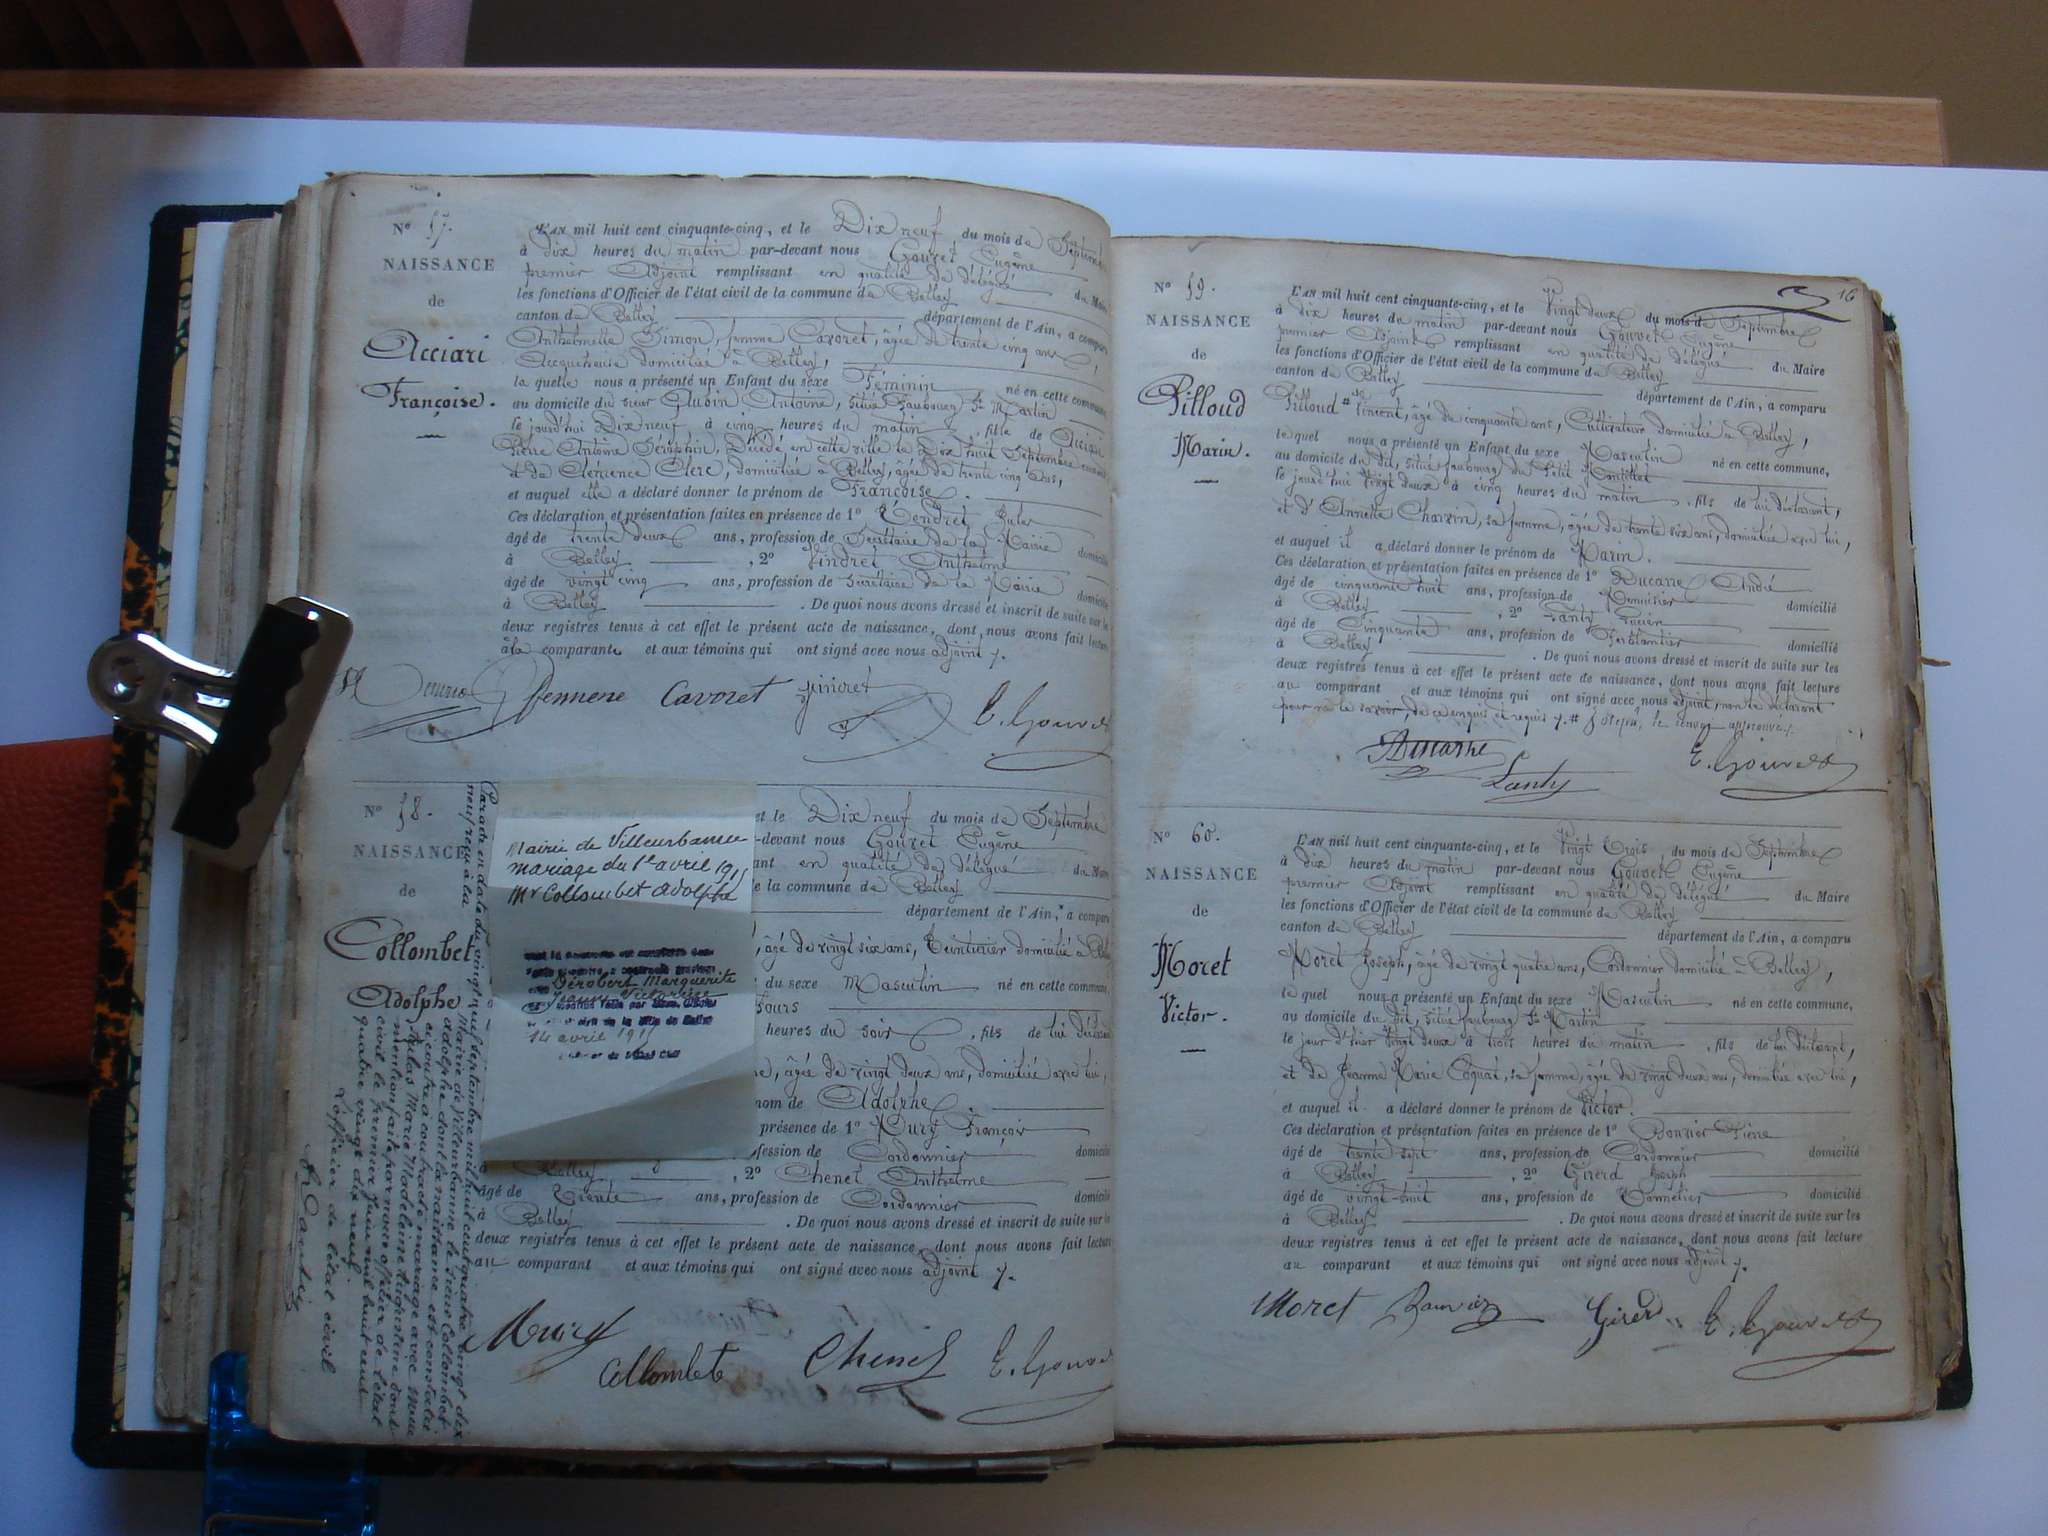 N° 57.
NAISSANCE
de
Acciari
Françoise.
L'AN mil huit cent cinquante-cinq, et le Dix neuf du mois de Septembre
à dix heures du matin par-devant nous Gouvet Eugène
premier Adjoint remplissant en qualité de délégué du Maire
les fonctions d'Officier de l'état civil de la commune de Belley
canton de Belley département de l'Ain, a comparu
Anthelmette Simon, femme Cavoret, âgée de trente cinq ans,
Accoucheuse domiciliée à Belley,
la quelle nous a présenté un Enfant du sexe Féminin né en cette commune,
au domicile du sieur Antoine, situé faubourg St Martin
le jourd'hui Dix neuf, à cinq heures du matin, fille de Acciari
Pierre Antoine Séraphin, Décédé en cette ville le Dix huit Septembre courant
et de Clémence Clerc, domiciliée à Belley, âgée de trente cinq ans,
et auquel elle a déclaré donner le prénom de Françoise.
Ces déclaration et présentation faites en présence de 1° Tendret Jules
âgé de trente deux ans, profession de Secrétaire de la Mairie domicilié
à Belley, 2° Vindret Anthelme
âgé de vingt cinq ans, profession de Secrétaire de la Mairie domicilié
à Belley. De quoi nous avons dressé et inscrit de suite sur les
deux registres tenus à cet effet le présent acte de naissance, dont nous avons fait lecture
à la comparante et aux témoins qui ont signé avec nous adjoint.
femme Cavoret E. Gouvet
N° 58.
NAISSANCE
de
Collombet
Adolphe
et le Dix neuf du mois de Septembre
-devant nous Gouvet Eugène
ant en qualité de délégué du Maire
de la commune de Belley
département de l'Ain, a comparu
, âgé de vingt six ans, Teinturier domicilié à Belley
du sexe Masculin né en cette commune,
heures du soir, fils de lui déclarant
, âgée de vingt deux ans, domiciliée avec lui,
nom de Adolphe.
présence de 1° Mury François
fession de Cordonnier domicilié
Belley, 2° Chenel Anthelme
âgé de Trente ans, profession de Cordonnier domicilié
à Belley. De quoi nous avons dressé et inscrit de suite sur les
deux registres tenus à cet effet le présent acte de naissance, dont nous avons fait lecture
au comparant et aux témoins qui ont signé avec nous adjoint.
Mury
Collombet Chenel E. Gouvet
Mairie de Villeurbanne
mariage du 1er avril 1911
Mr Collombet Adolphe
Dérobert Marguerite
14 avril 1911
Par acte en date du vingt quel septembre mil huit cent quatre vingt dix
neuf reçu à la
Mairie de Villeurbanne le sieur Collombet
Adolphe dont la naissance est constatée
ci contre a contracté mariage avec Melle
Aulas Marie Madeleine Augustine dont
mention faite par nous officier de l'état
civil le premier juin mil huit cent
quatre vingt dix neuf.
L'officier de l'état civil
16
N° 59.
NAISSANCE
de
Pilloud
Marin.
L'AN mil huit cent cinquante-cinq, et le Vingt deux du mois de Septembre
à dix heures du matin par-devant nous Gouvet Eugène
premier Adjoint remplissant en qualité de délégué du Maire
les fonctions d'Officier de l'état civil de la commune de Belley
canton de Belley département de l'Ain, a comparu
Pilloud Vincent, âgé de cinquante ans, Cultivateur domicilié à Belley,
lequel nous a présenté un Enfant du sexe Masculin né en cette commune,
au domicile du dit, situé faubourg du Petit
le jourd'hui Vingt deux à cinq heures du matin, fils de lui déclarant,
et d'Annette Charvin, sa femme, âgée de trente six ans, domiciliée avec lui,
et auquel il a déclaré donner le prénom de Marin.
Ces déclaration et présentation faites en présence de 1° Ducarre André
âgé de cinquante huit ans, profession de Menuisier domicilié
à Belley, 2° Lanty Lucien
âgé de Cinquante ans, profession de Ferblantier domicilié
à Belley. De quoi nous avons dressé et inscrit de suite sur les
deux registres tenus à cet effet le présent acte de naissance, dont nous avons fait lecture
au comparant et aux témoins qui ont signé avec nous adjoint, non le déclarant
pour ne le savoir, de ce enquis et requis. # Joseph, le renvoi approuvé.
Ducarre
Lanty E. Gouvet
N° 60.
NAISSANCE
de
Moret
Victor.
L'AN mil huit cent cinquante-cinq, et le Vingt Trois du mois de Septembre
à dix heures du matin par-devant nous Gouvet Eugène
premier Adjoint remplissant en qualité de délégué du Maire
les fonctions d'Officier de l'état civil de la commune de Belley
canton de Belley département de l'Ain, a comparu
Moret Joseph, âgé de vingt quatre ans, Cordonnier domicilié à Belley,
lequel nous a présenté un Enfant du sexe Masculin né en cette commune,
au domicile du dit, situé faubourg St Martin
le jour d'hier Vingt deux à trois heures du matin, fils de lui déclarant,
et de Jeanne Marie Coquat, sa femme, âgée de vingt deux ans, domiciliée avec lui,
et auquel il a déclaré donner le prénom de Victor.
Ces déclaration et présentation faites en présence de 1° Bonvier Pierre
âgé de trente sept ans, profession de Cordonnier domicilié
à Belley, 2° Girerd Joseph
âgé de vingt huit ans, profession de Tonnelier domicilié
à Belley. De quoi nous avons dressé et inscrit de suite sur les
deux registres tenus à cet effet le présent acte de naissance, dont nous avons fait lecture
au comparant et aux témoins qui ont signé avec nous adjoint.
Moret Bonvier Girerd E. Gouvet